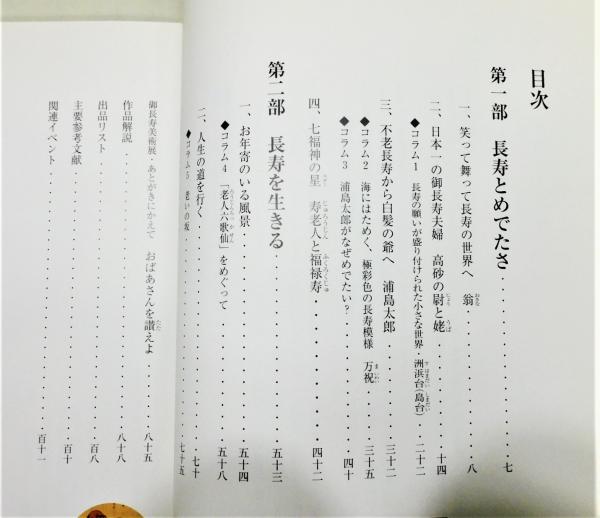 目次
第一部　長寿とめでたさ・・・・・・・・・・七
一、笑って舞って長寿の世界へ　翁（おきな）・・・・・・・・・・八
二、日本一の御長寿夫婦　高砂の尉（じょう）と姥（うば）・・・・・・・・・・十四
◆コラム1　長寿の願いが盛り付けられた小さな世界・洲浜台（すはまだい）（島台（しまだい））・・・・二十二
三、不老長寿から白髪の爺へ　浦島太郎・・・・・・・・・・三十二
◆コラム2　海にはためく、極彩色の長寿模様　万祝（まいわい）・・・・・・・・・・三十五
◆コラム3　浦島太郎がなぜめでたい？・・・・・・・・・・四十
四、七福神の星　寿老人（じゅろうじん）と福禄寿（ふくろくじゅ）・・・・・・・・・・四十二
第二部　長寿を生きる・・・・・・・・・・五十三
一、お年寄のいる風景・・・・・・・・・・五十四
◆コラム4　「老人六歌仙」をめぐって・・・・・・・・・・五十八
二、人生の道を行く・・・・・・・・・・七十
◆コラム5　老いの坂・・・・・・・・・・七十五
御長寿美術展・あとがきにかえて　おばあさんを讃（たた）えよ・・・・・・・・・・八十五
作品解説・・・・・・・・・・八十八
出品リスト・・・・・・・・・・百八
主要参考文献・・・・・・・・・・百十
関連イベント・・・・・・・・・・百十一